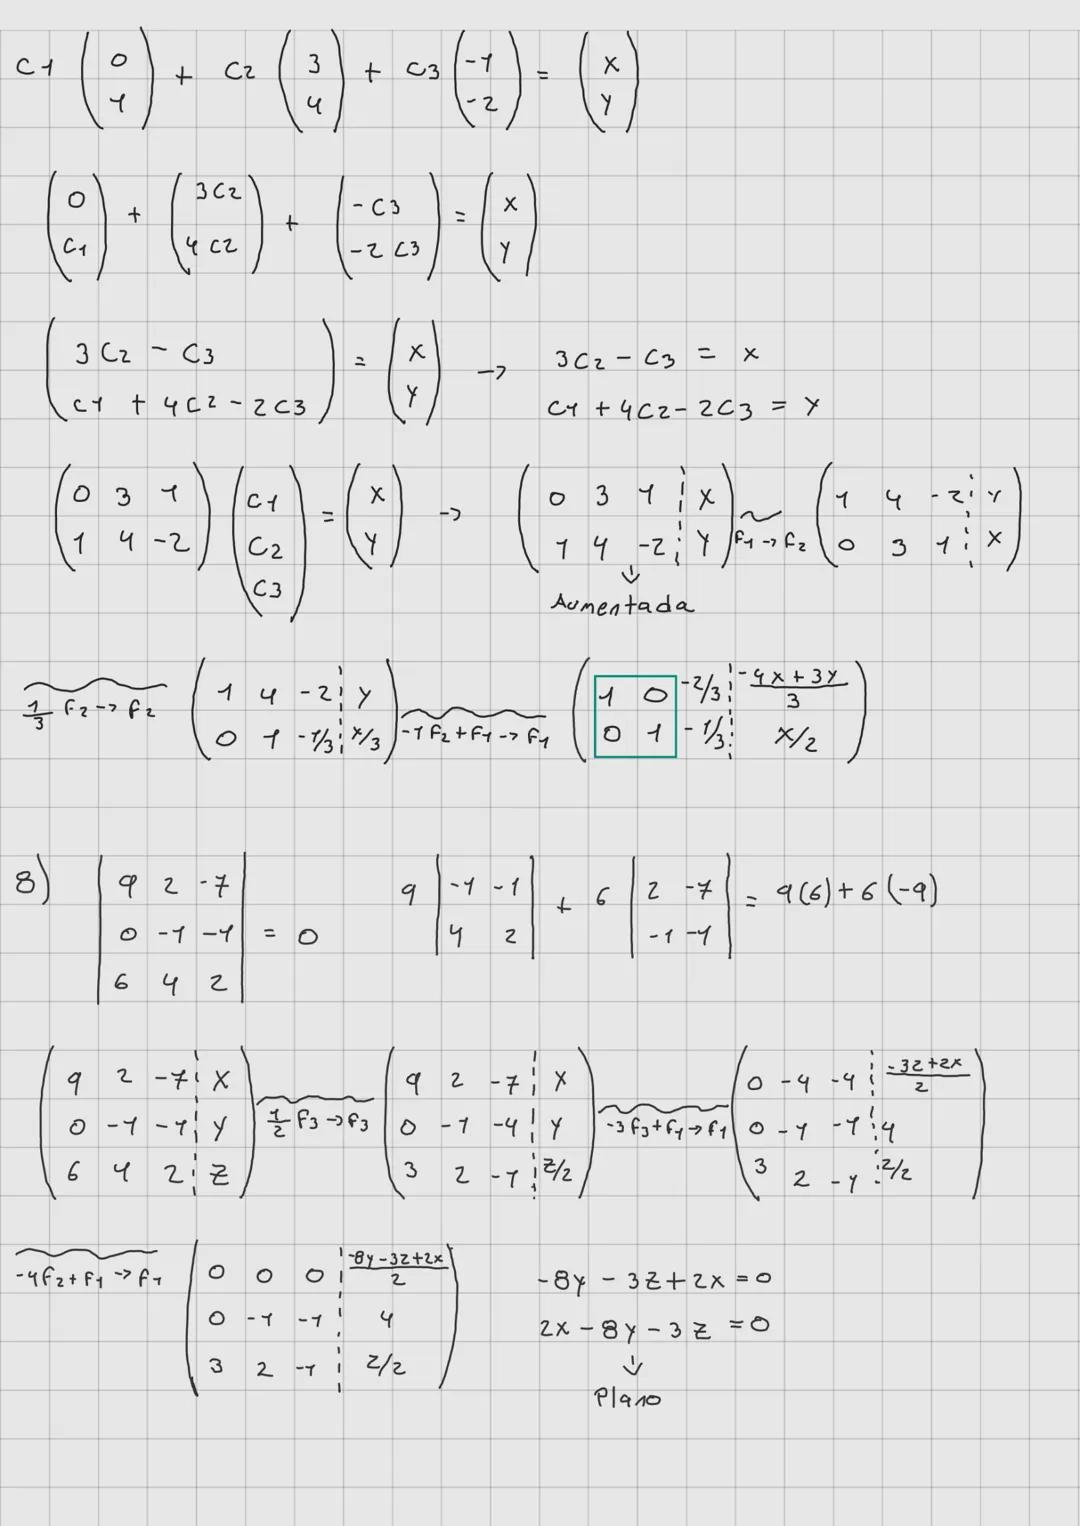 C1 (0 1) + C2 (3 4) + C3 (-1 -2) = (x y)
(0 C1) + (3C2 4C2) + (-C3 -2C3) = (x y)
(3C2 - C3 C1 + 4C2 - 2C3) = (x y) -> 3C2 - C3 = x
C1 + 4C2 - 2C3 = y
(0 3 1
1 4 -2) (C1 C2 C3) = (x y) -> (0 3 1 ¦ x
1 4 -2 ¦ y) f1 -> f2 (1 4 -2 ¦ y
0 3 1 ¦ x)
↓
Aumentada
1/3 f2 -> f2 (1 4 -2 ¦ y
0 1 -1/3 ¦ x/3) -1f2 + f1 -> f1 (1 0 -2/3 ¦ (-4x + 3y)/3
0 1 -1/3 ¦ x/2)
8) |9 2 -7
0 -1 -1
6 4 2| = 0
9 |-1 -1
4 2| + 6 |2 -7
-1 -1| = 9(6) + 6(-9)
(9 2 -7 ¦ x
0 -1 -1 ¦ y
6 4 2 ¦ z) 1/2 f3 -> f3 (9 2 -7 ¦ x
0 -1 -1 ¦ y
3 2 -1 ¦ z/2) -3f3 + f1 -> f1 (0 -4 -4 ¦ (-3z+2x)/2
0 -1 -1 ¦ 4
3 2 -1 ¦ z/2)
-4f2 + f1 -> f1 (0 0 0 ¦ (-8y-3z+2x)/2
0 -1 -1 ¦ 4
3 2 -1 ¦ z/2)
-8y - 3z + 2x = 0
2x - 8y - 3z = 0
↓
Plano